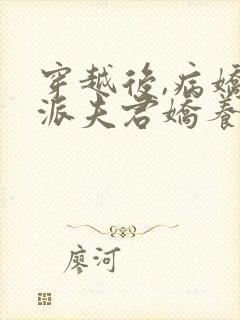 穿越後,病嬌
派夫君嬌養
廖河